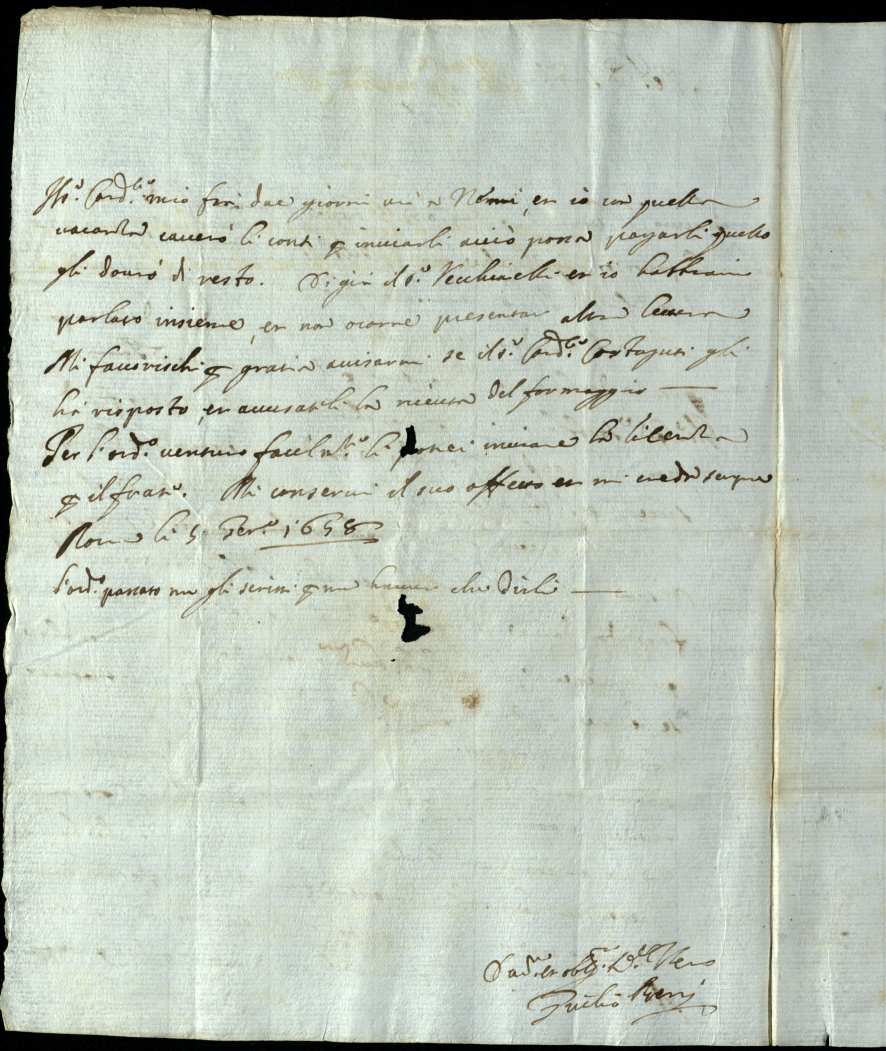 Il s.r Card.le mio fra due giorni và a Nemi, et io con quella
vacanza caverò li conti p inviarli acciò possa pagarli quello
gli dovrò di resto. Di già il s.r Vecchiarelli et io habbiam
parlato insieme, et non ocorre presentar altra lettera
Mi favorischi p gratia avisarmi se il s.r Card.le Costaguti gli
hà risposto, et accusatoli la ricevuta del formaggio
Per l'ord.o venturo facilm.te li potrei inviare la licenza
p il frate. Mi conservi il suo affetto et mi creda sempre
Roma li 5 1658
l'ord.o passato non gli scrissi p non havere che dirli
et obl. Vero
Giulio